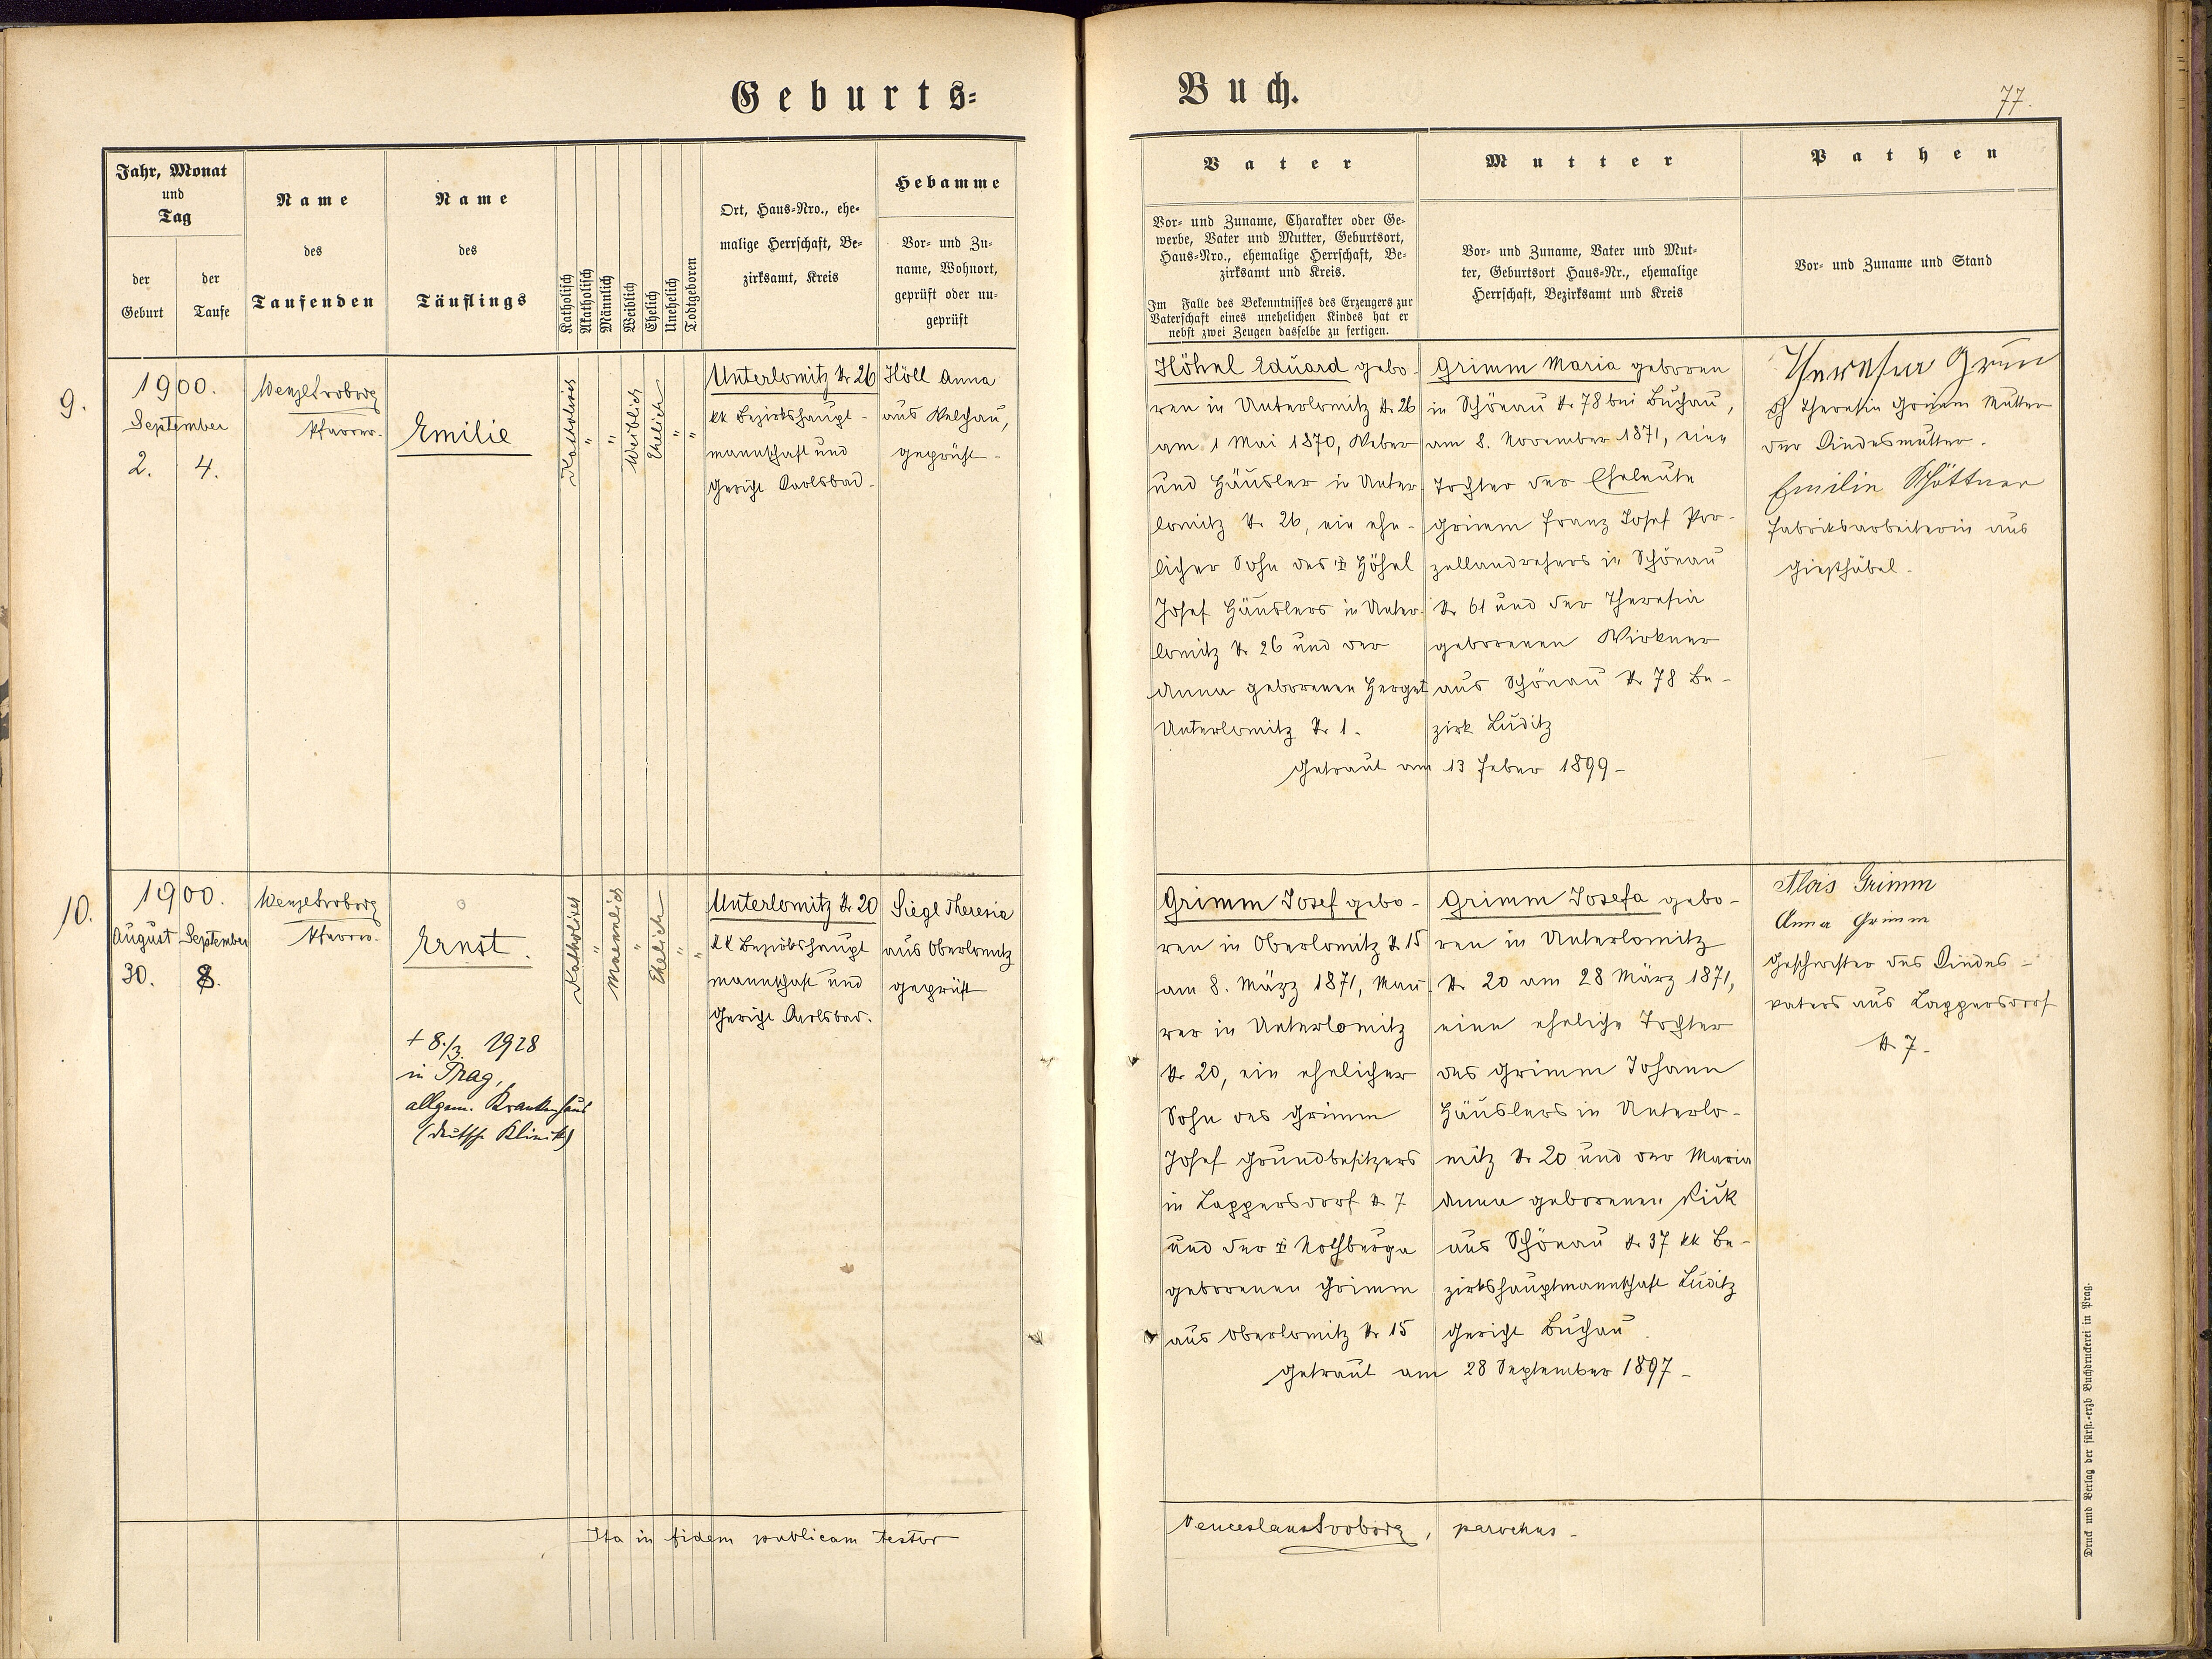 Geburts-
Buch.
77.
Jahr, Monat
und
Tag
der
Geburt
der
Taufe
Name
des
Taufenden
Name
des
Täuflings
Katholisch
Akatholisch
Männlich
Weiblich
Ehelich
Unehelich
Todtgeboren
Ort, Haus-Nro., ehe-
malige Herrschaft, Be-
zirksamt, Kreis
Hebamme
Vor- und Zu-
name, Wohnort,
geprüft oder un-
geprüft
Vater
Vor- und Zuname, Charakter oder Ge-
werbe, Vater und Mutter, Geburtsort,
Haus-Nro., ehemalige Herrschaft, Be-
zirksamt und Kreis.
Im Falle des Bekenntnisses des Erzeugers zur
Vaterschaft eines unehelichen Kindes hat er
nebst zwei Zeugen dasselbe zu fertigen.
Mutter
Vor- und Zuname, Vater und Mut-
ter, Geburtsort Haus-Nr., ehemalige
Herrschaft, Bezirksamt und Kreis
Pathen
Vor- und Zuname und Stand
9.
1900.
September
2. 4.
Wenzel Svoboda
Pfarrer.
Emilie
Katholisch
"
"
Weiblich
Ehelich
"
"
Unterlomitz Nr 26
kk Bezirkshaupt-
mannschaft und
Gericht Karlsbad.
Höll Anna
aus Welchau,
geprüft-
Höhnl Eduard gebo-
ren in Unterlomitz Nr 26
am 1 Mai 1870, Weber
und Häusler in Unter
lomitz Nr 26, ein ehe-
licher Sohn des Höhnl
Josef Häuslers in Unter-
lomitz Nr 26 und der
Anna geborenen Herget
Unterlomitz Nr 1.
Grimm Maria geboren
in Schönau Nr 78 bei Buchau,
am 8. November 1871, eine
Tochter der Eheleute
Grimm Franz Josef Por-
zellandrehers in Schönau
Nr 61 und der Theresia
geborenen Wirkner
aus Schönau Nr 78 Be-
zirk Luditz
Getraut am 13 Feber 1899-
Theresia Grimm
Theresia Grimm Mutter
der Kindesmutter.
Emilie Schöttner
Fabriksarbeiterin aus
Gießhübel.
10.
1900.
August September
30. 8.
Wenzel Svoboda
Pfarrer.
Ernst.
+ 8./3. 1928
in Prag,
allgem. Krankenhaus
(deutsche Klinik)
Katholisch
"
Maennlich
"
Ehelich
"
"
Unterlomitz Nr 20
kk Bezirkshaupt
mannschaft und
Gericht Karlsbad.
Siegl Theresia
aus Oberlomitz
geprüft
Grimm Josef gebo-
ren in Oberlomitz Nr 15
am 8. März 1871, Mau-
rer in Unterlomitz
Nr 20, ein ehelicher
Sohn des Grimm
Josef Grundbesitzers
in Lappersdorf Nr 7
und der Nothburga
geborenen Grimm
aus Oberlomitz Nr 15
Grimm Josefa gebo-
ren in Unterlomitz
Nr 20 am 28 März 1871,
eine eheliche Tochter
des Grimm Johann
Häuslers in Unterlo-
mitz Nr 20 und der Maria
Anna geborenen
aus Schönau Nr 37 kk Be-
zirkshauptmannschaft Luditz
Gericht Buchau.
Getraut am 28 September 1897-
Alois Grimm
Anna Grimm
Geschwister des Kindes-
vaters aus Lappersdorf
Nr 7.
Ita in fidem publicam testor
Venceslaus Svoboda, parochus-
Druck und Verlag der fürst.-erzb Buchdruckerei in Prag.